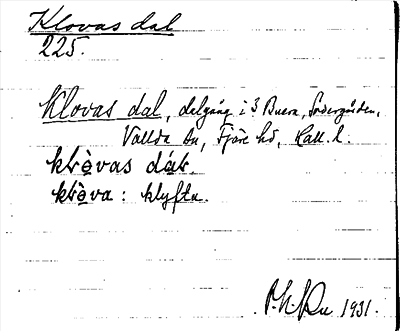 Klovas dal
225.
Klovas dal, dalgång i 3 Buera, Södergården,
Vallda sn, Fjäre hd, Hall. l.
klo̖vas dal.
klo̖va : klyfta.
1931.